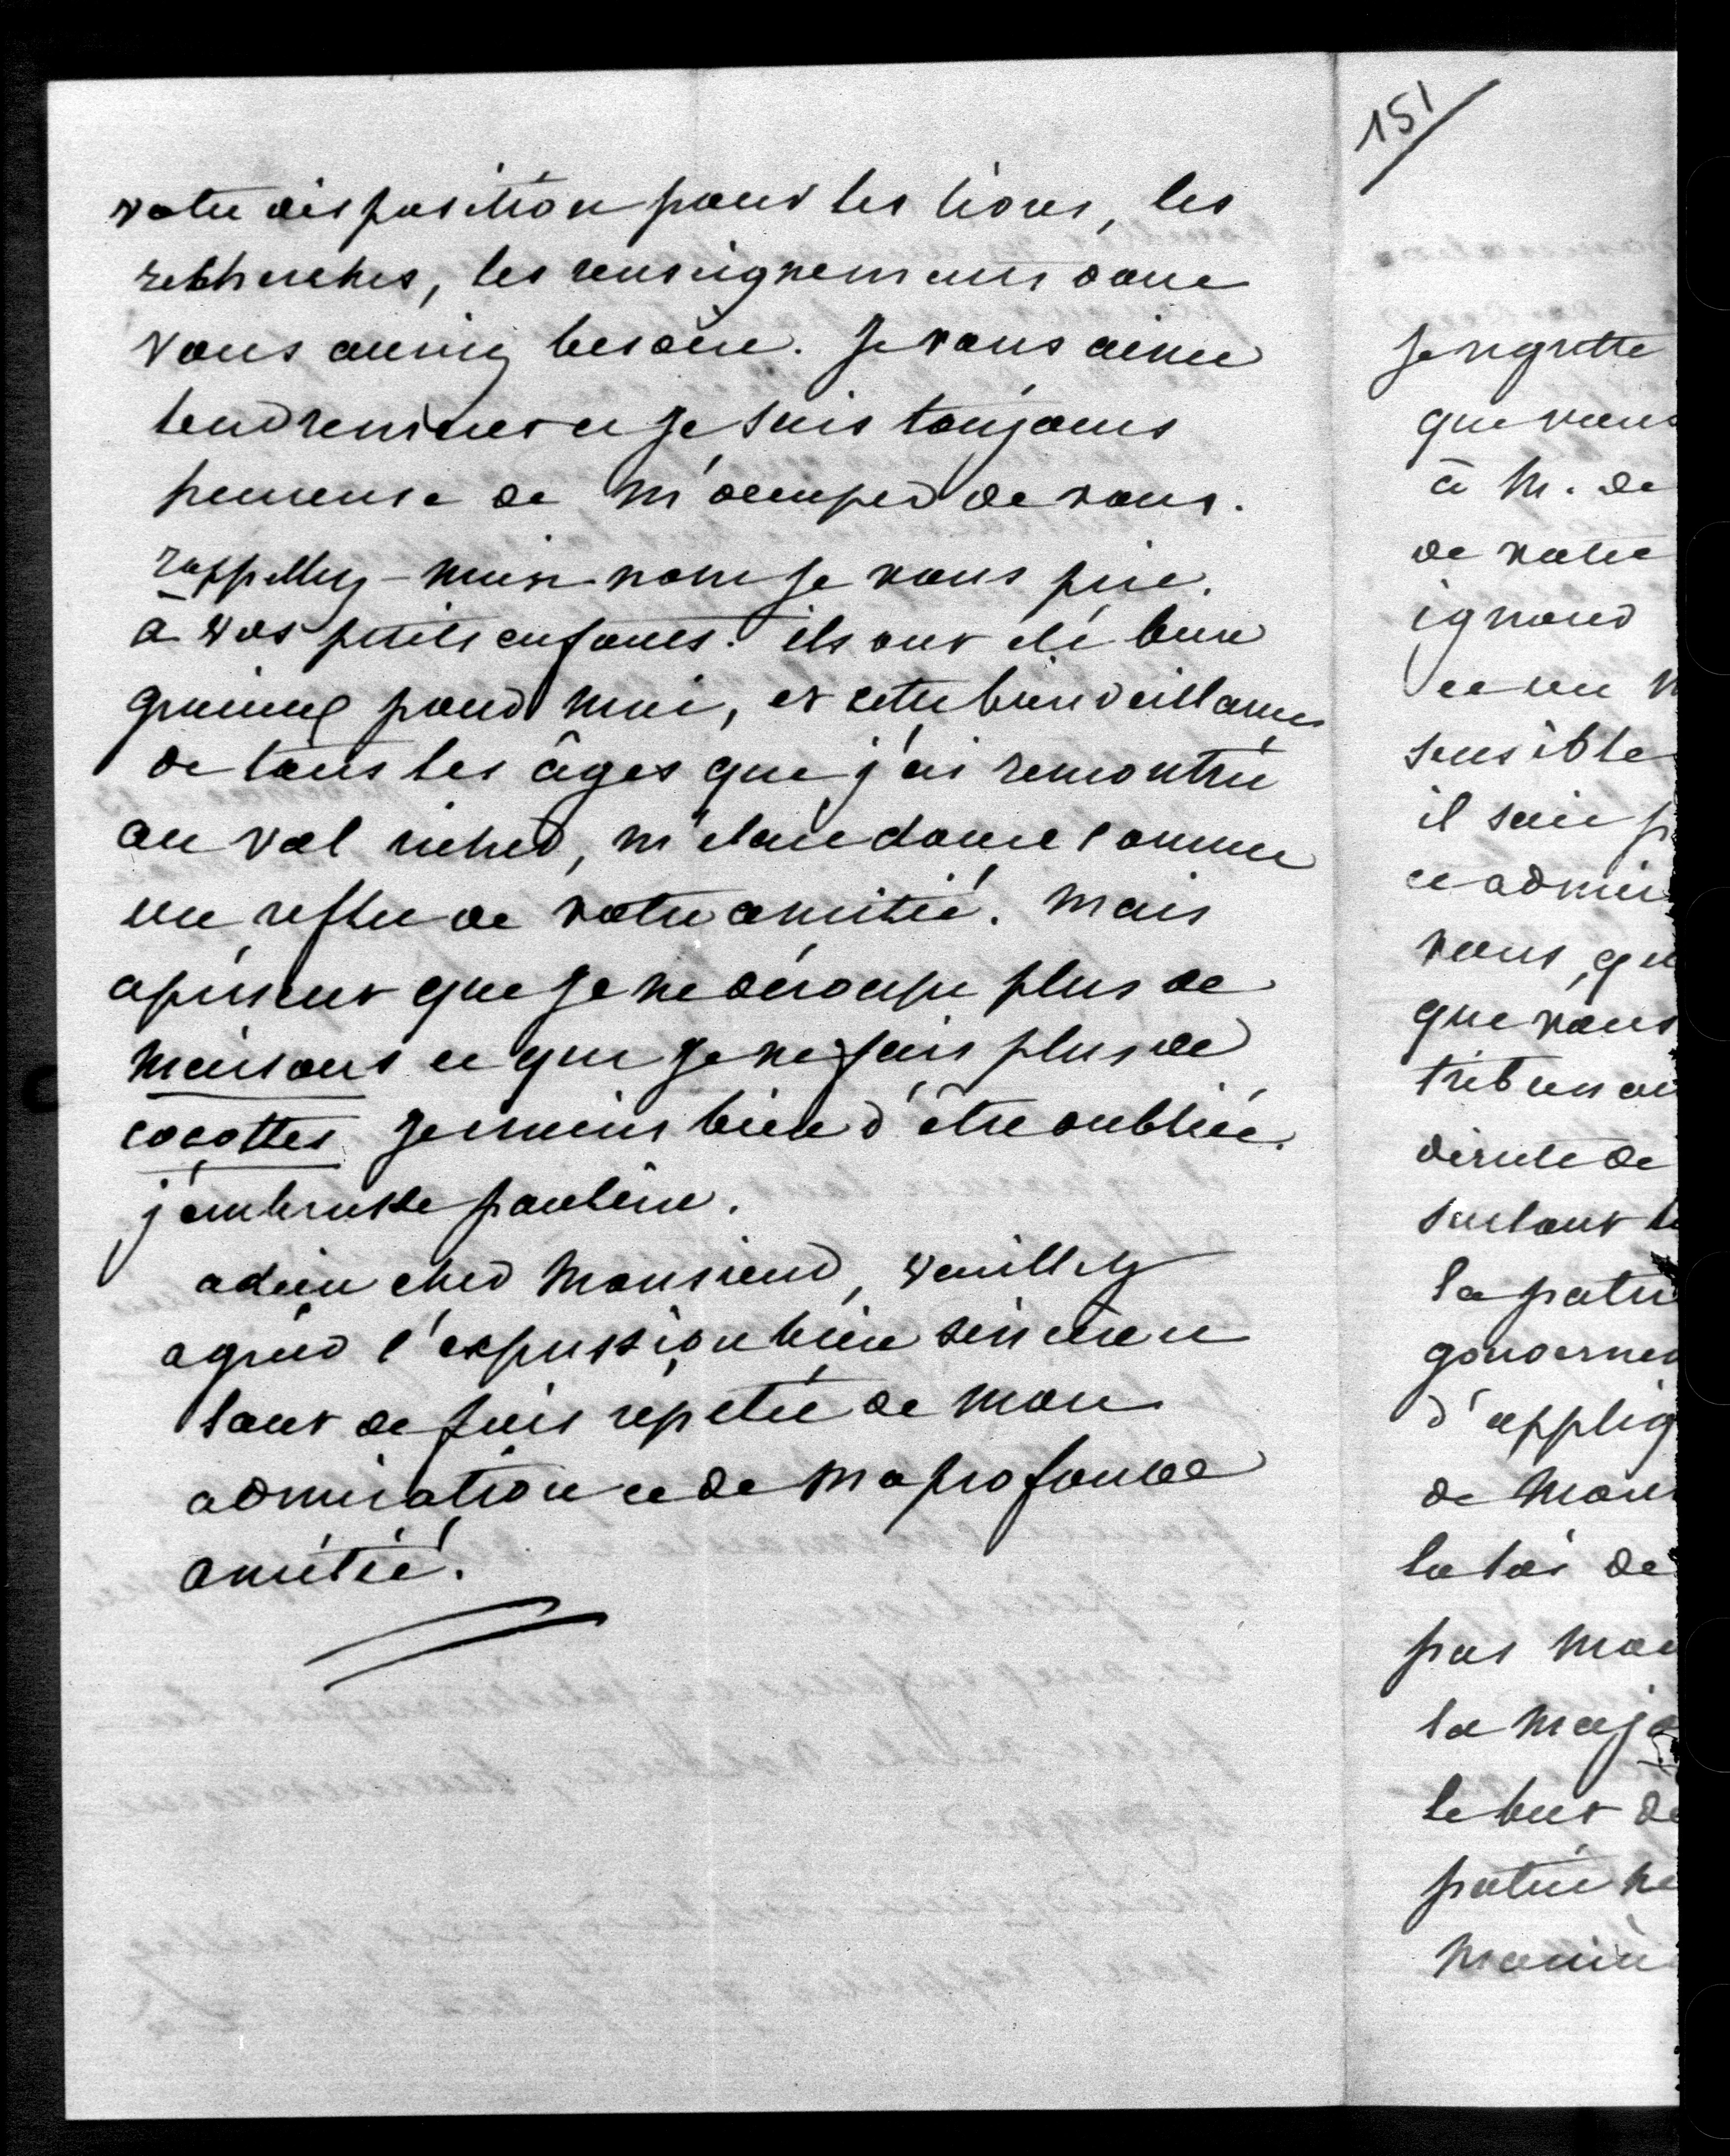 votre disposition pour les livres, les
recherches, les renseignements dont
vous auriez besoin. Je vous aime
tendrement et je suis toujours
heureuse de m'occuper de vous.
rappellez-moi je vous prie.
à vos petits enfants. ils ont été bien
gracieux pour moi, et cette bienveillance
de tous les âges que j'ai rencontrée
au val richer, m'était douce comme
un reflet de votre amitié. Mais
apresent que je ne découpe plus de
maisons et que je ne fais plus de
cocottes je crains bien d'être oubliée.
j'embrasse pauline.
adieu cher Monsieur, veuillez
agréer l'expression bien sincère et
tant de fois répétée de mon
admiration et de ma profonde
amitié.
151
Je regrette
que vous
à M. de
de votre
et un
sensible
il sait
et admi
vous, qu
que vous
tribun
de
surtout
la patri
gouverne
d'appliq
de
la loi de
pas
la majo
le but de
patrie ne